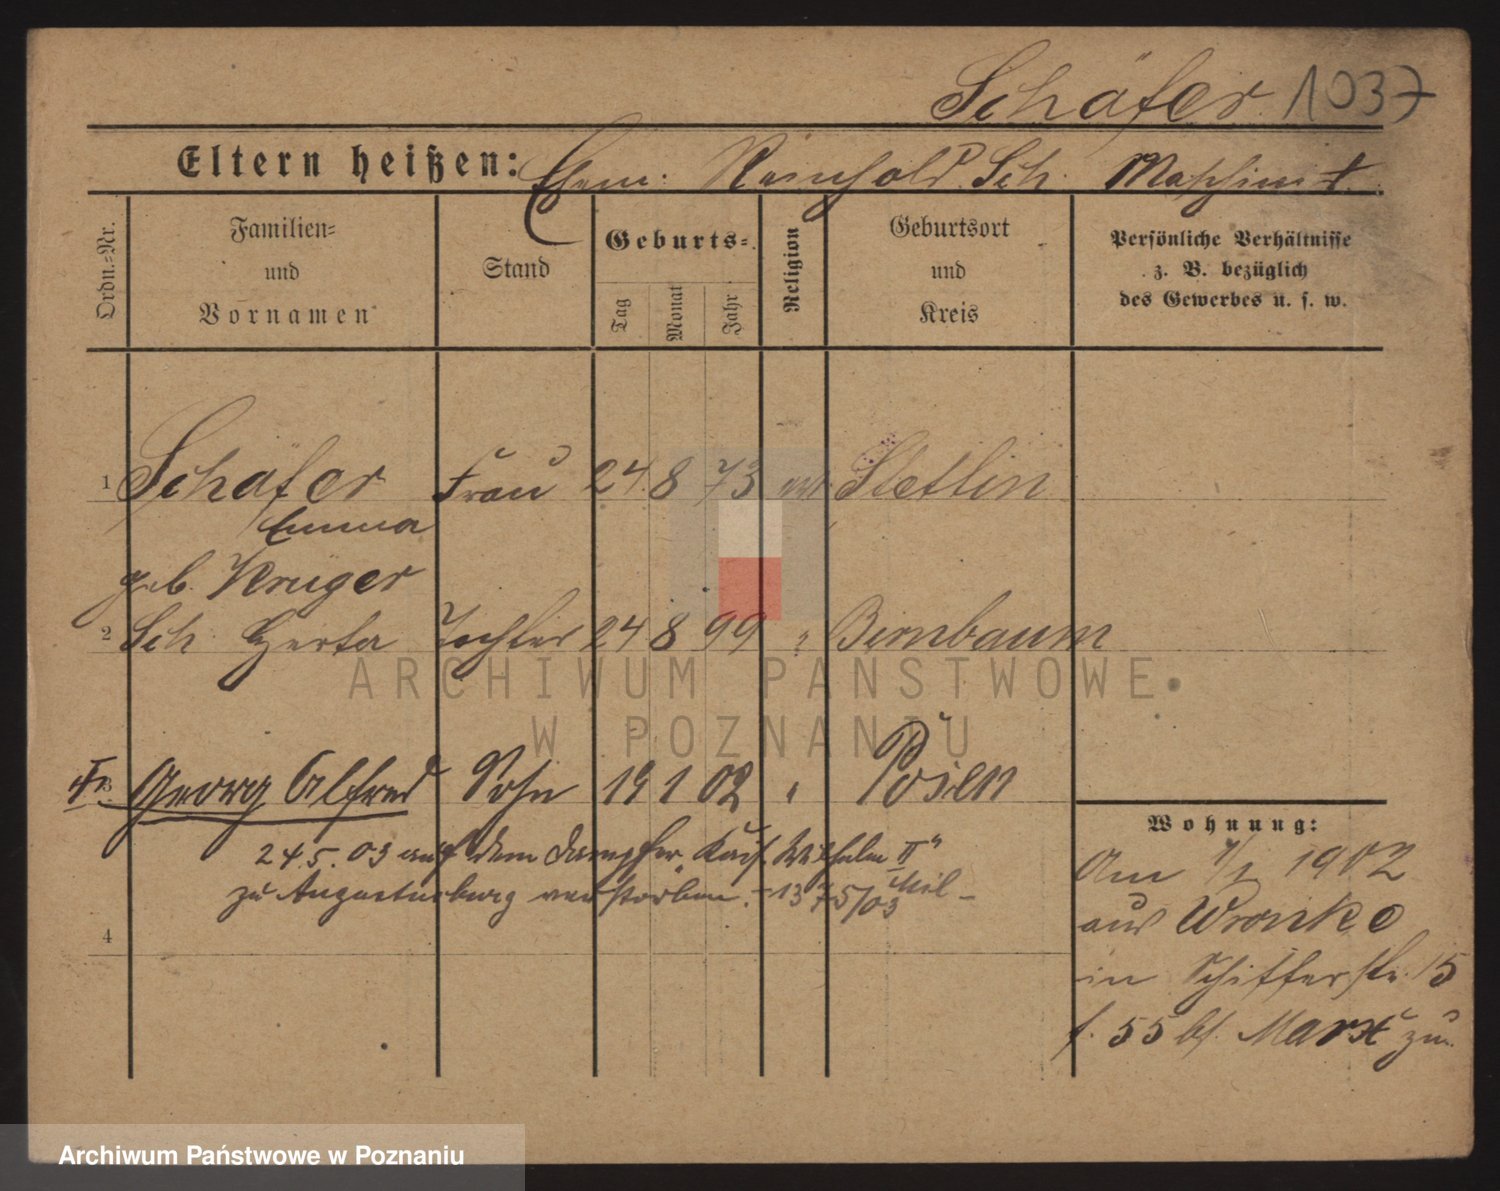 Schäfer 1037
Eltern heißen: Ehem: Reinhold Sch. Maschinist.
Ordn.-Nr.
Familien-
und
Vornamen
Stand
Geburts-
Tag
Monat
Jahr
Religion
Geburtsort
und
Kreis
Persönliche Verhältnisse
z. B. bezüglich
des Gewerbes u. s. w.
1 Schäfer Frau 24. 8 73 ev. Stettin
Emma
geb. Krüger
2 Sch. Herta Tochter 24 8 99 " Birnbaum
3 Georg Alfred Sohn 19 1 02 " Posen
24.5.03 auf dem Dampfer „Kais. Wilhelm II“
zu Augustusburg verstorben. – 1375/03 Mil –
4
Wohnung:
Am 1/1 1902
aus Wronke
in Schifferstr. 15
f. 55 bf. Marx zu.
ARCHIWUM PAŃSTWOWE
W POZNANIU
Archiwum Państwowe w Poznaniu